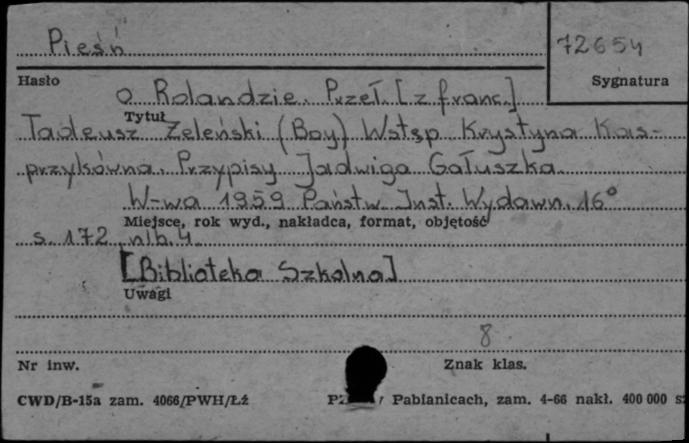 Pieśń
72654
Hasło
Sygnatura
o Rolandzie. Przeł. [z franc.]
Tytuł
Tadeusz Żeleński (Boy) Wstęp Krystyna Kas-
przykówna. Przypisy Jadwiga Gałuszka
W-wa 1959 Państw. Inst. Wydawn. 16°
Miejsce, rok wyd., nakładca, format, objętość
s. 172, nlb. 4
[Biblioteka Szkolna]
Uwagi
8
Nr inw.
Znak klas.
CWD/B-15a zam. 4066/PWH/Łź
Pabianicach, zam. 4-66 nakł. 400 000